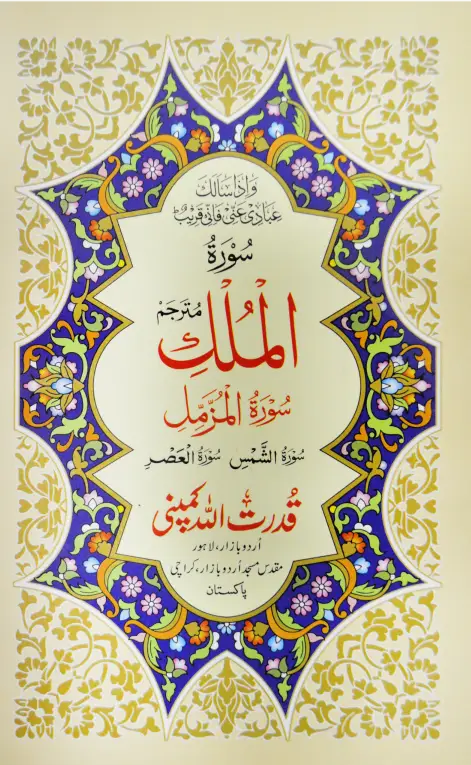 وَاِذَا سَاَلَكَ
عِبَادِیْ عَنِّیْ فَاِنِّیْ قَرِیْبٌ ؕ
سُوْرَۃُ
الْمُلْكِ مُترجَم
سُوْرَۃُ الْمُزَّمِّل
سُوْرَۃُ الشَّمْسِ سُوْرَۃُ الْعَصْرِ
قُدرت اللہ کمپنی
اُردو بازار، لاہور
مقدس مسجد اُردو بازار، کراچی
پاکستان